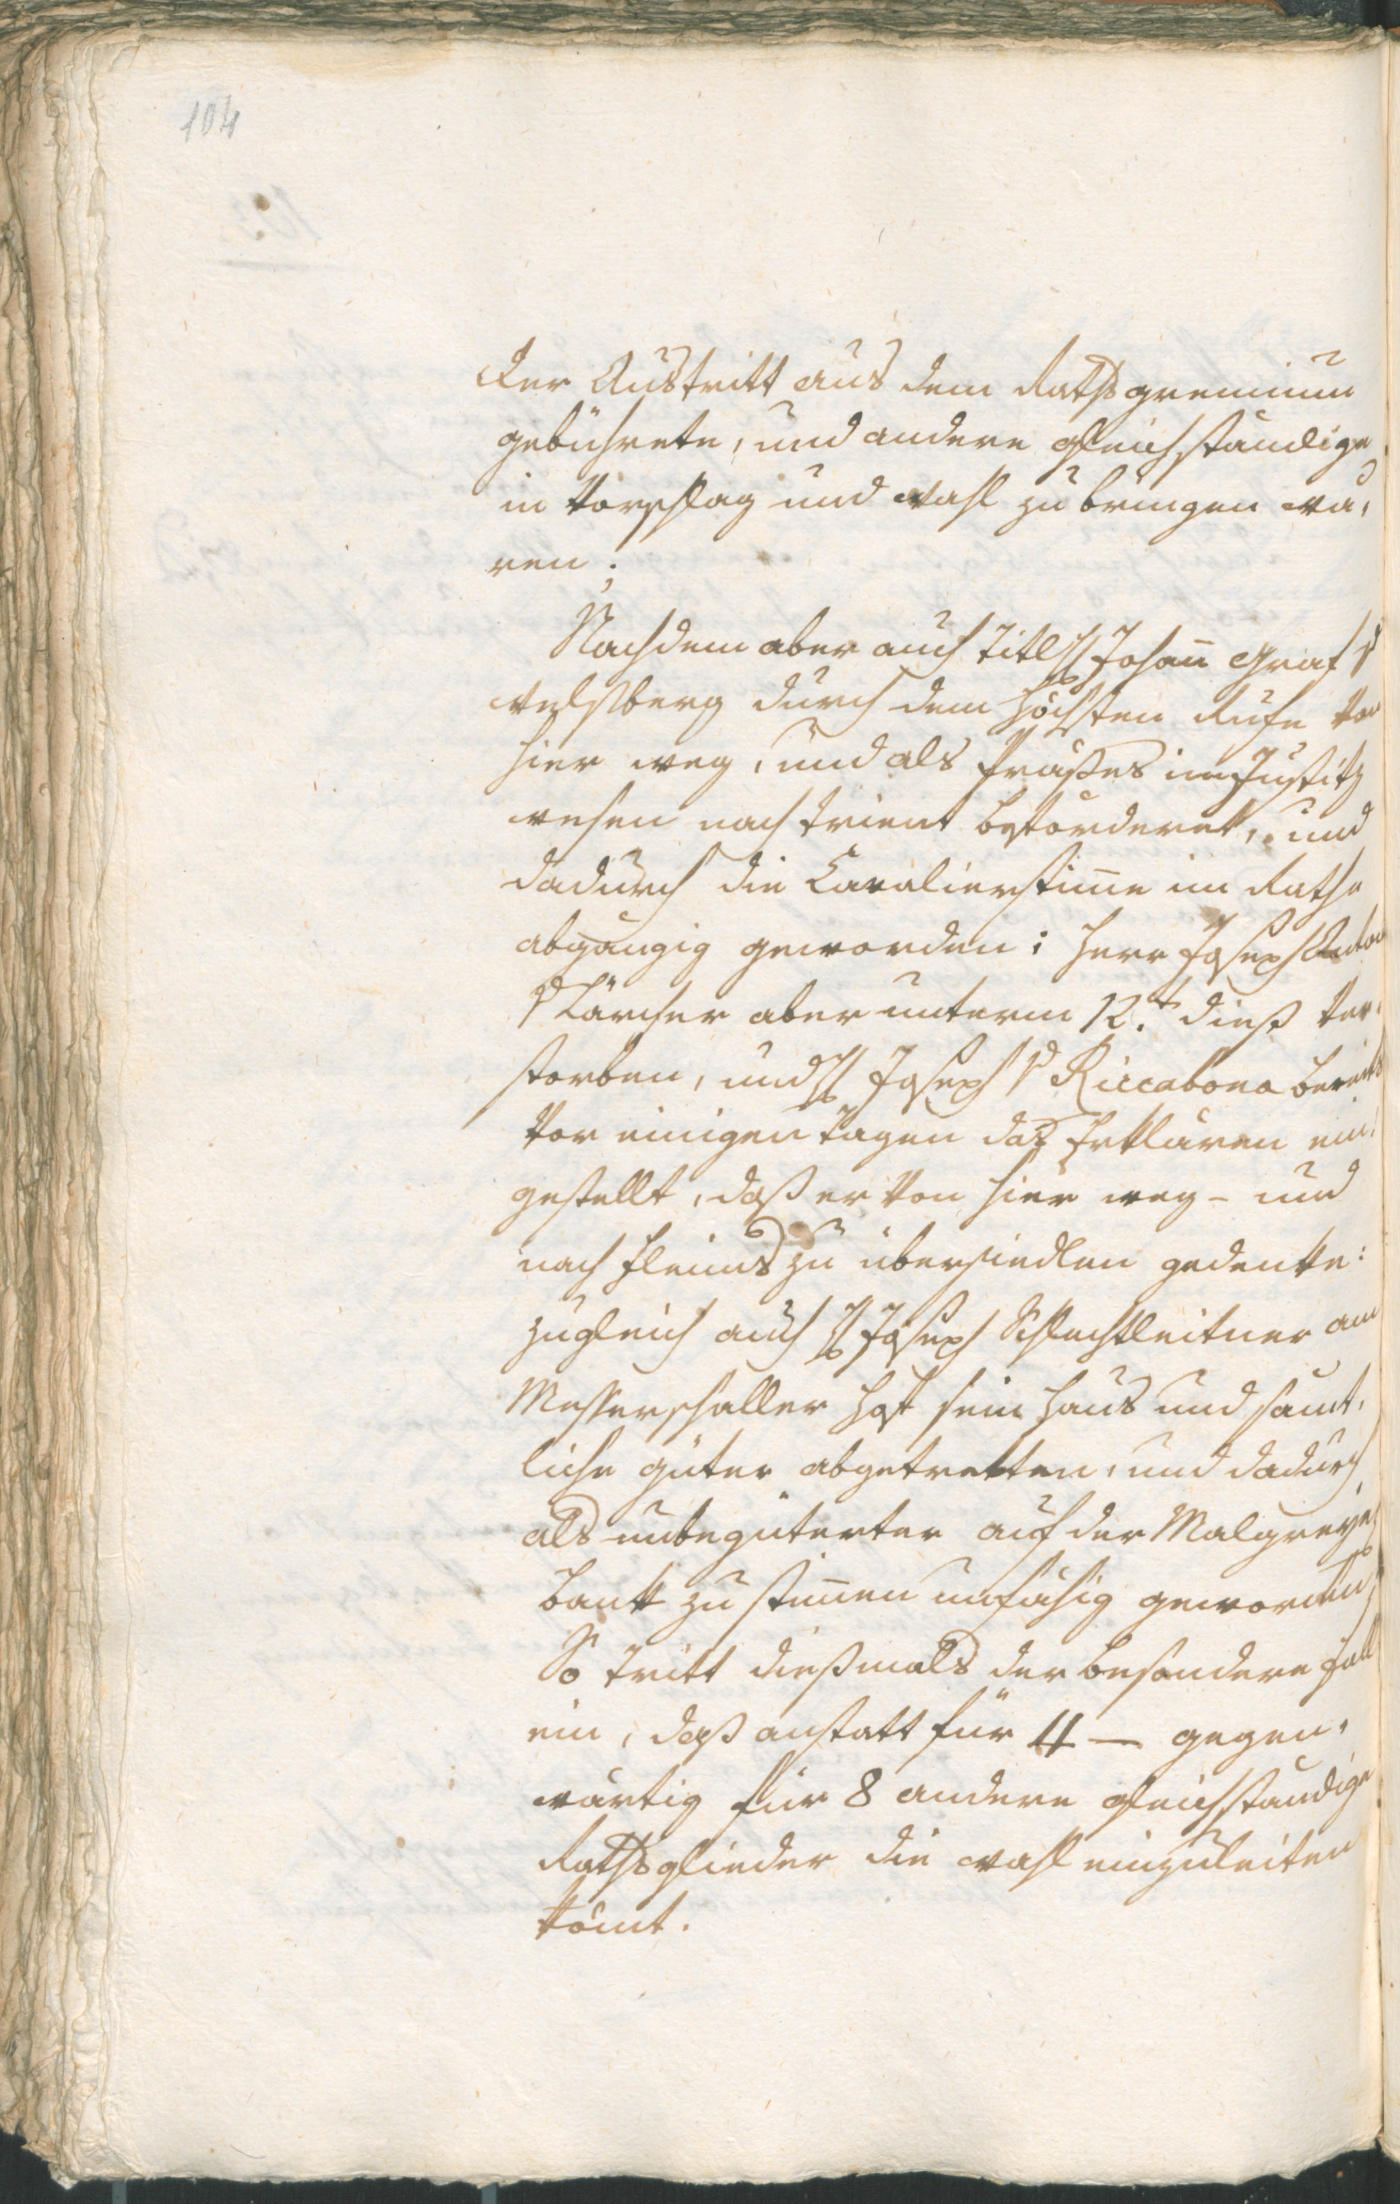 104
der Austritt aus dem Rathsgremium
gebührete, und andere gleichständige
in Vorschlag und wahl zu bringen wä,
ren;
Nachdem aber auch titl H Johañ Graf v
welsberg durch dem höchsten Rufe von
hier weg, und als Präses im Justitz
wesen nach Trient beförderet, und
dadurch die Cavalierstim̄e im Rathe
abgängig geworden: Herr Joseph Anton
v Lärcher aber unterm 12.t dieß ver,
storben, und H Joseph v Riccabona bereits
vor einigen Tägen das Erklären ein,
gestellt, daß er von hier weg- und
nach Fleims zu übersiedlen gedenke:
zugleich auch H Joseph Schlechtleitner am
Messerschaller hof sein haus und sämt,
liche güter abgetretten, und dadurch
als unbegüterter auf der Malgreyer
bank zu stim̄en unfähig geworden;
So tritt dießmals der besondere Fall
ein, daß anstatt für 4 — gegen,
wärtig für 8 andere gleichständige
Rathsglieder die wahl einzuleiten
köm̄t.